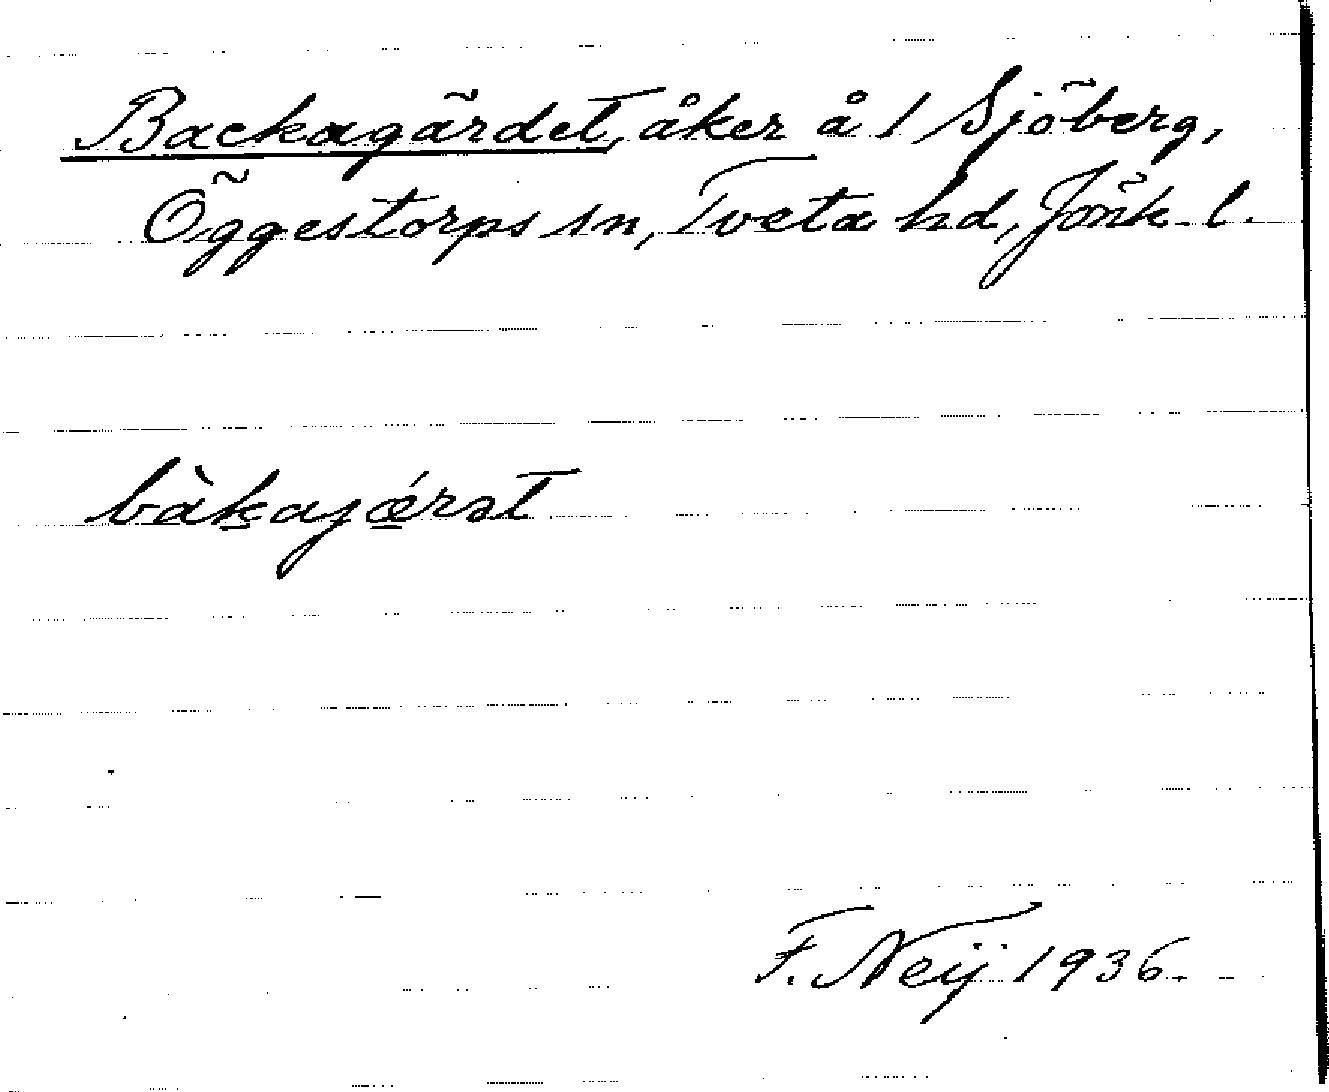 Backagärdet, åker å 1 Sjöberg,
Öggestorps sn, Tveta hd, Jönk. l.
bàka̱jǽ̱rət
F. Neij 1936.